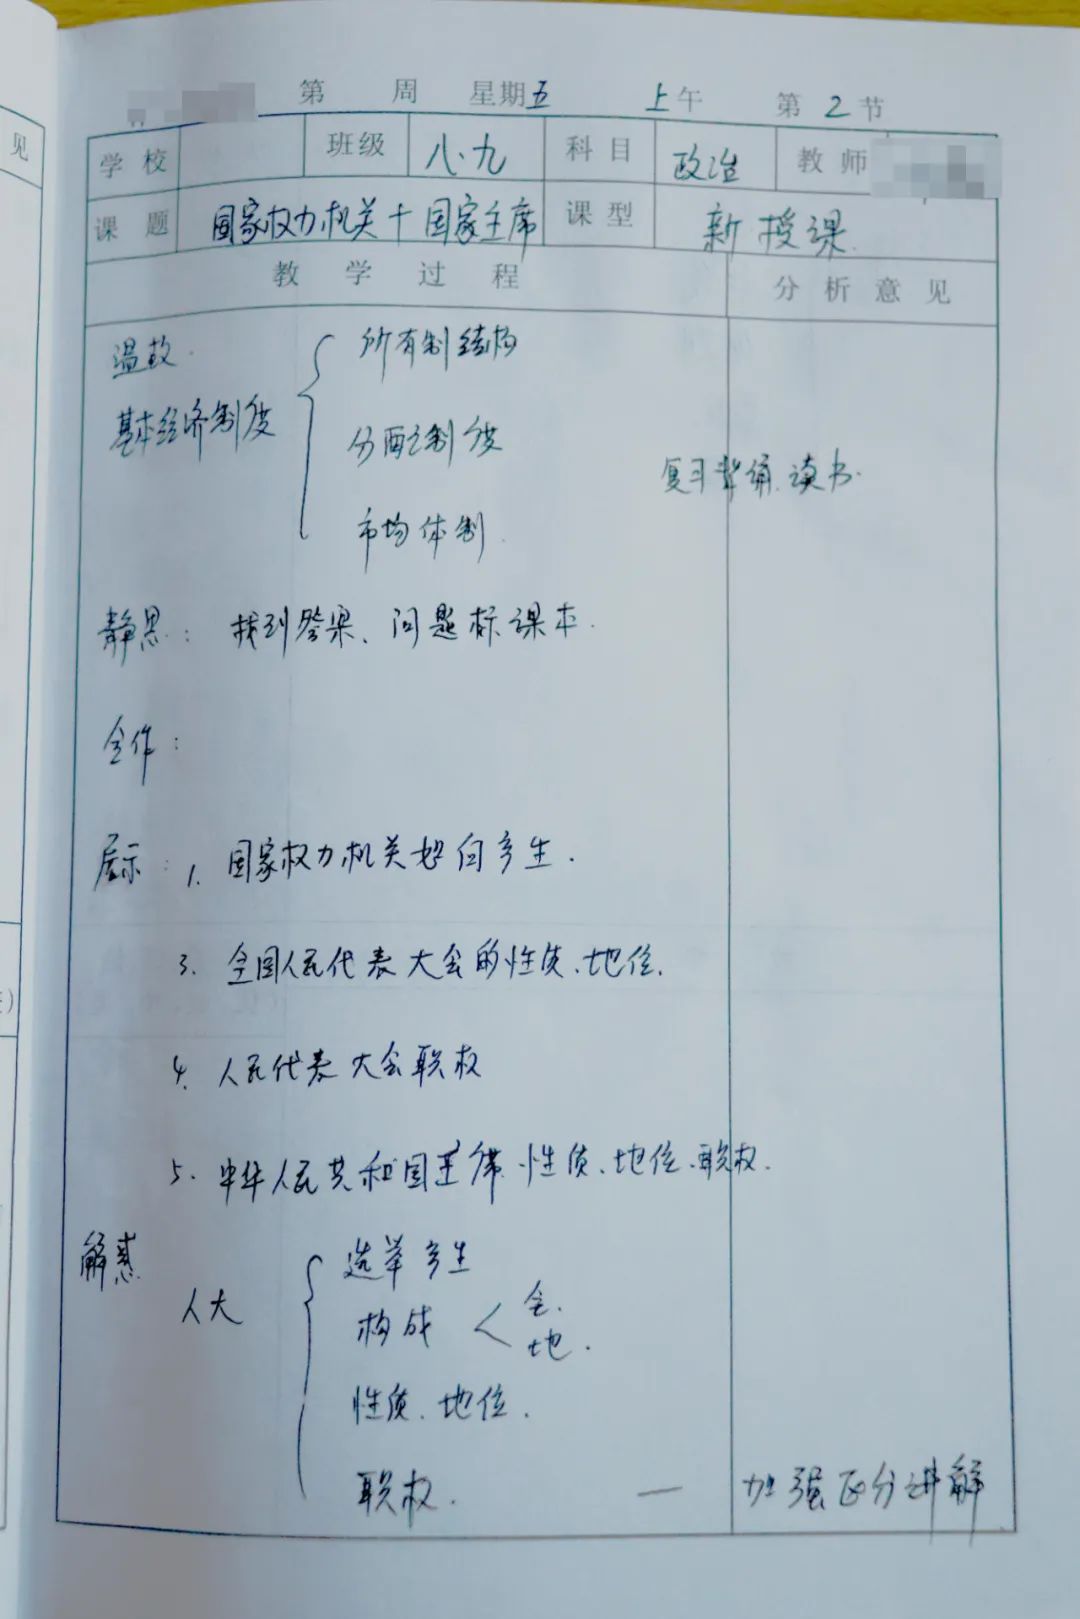 见
第 周 星期五 上午 第2节
学校 班级 八.九 科目 政治 教师
课题 国家权力机关+国家主席 课型 新授课.
教学过程 分析意见
温故.
所有制结构
基本经济制度
分配制度
复习背诵、读书.
市场体制.
静思: 找到答案、问题标课本.
合作:
展示: 1. 国家权力机关如何产生.
3. 全国人民代表大会的性质、地位.
4. 人民代表大会职权
5. 中华人民共和国主席性质、地位、职权.
解惑
选举产生
人大
构成 < 全.
地.
性质、地位.
职权. — 加强区分讲解